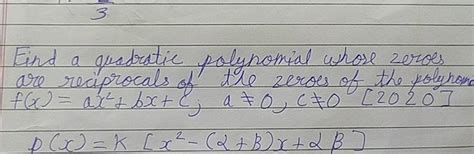 3
Find a quadratic polynomial whose zeroes
are reciprocals of the zeroes of the polynom
f(x) = ax²+ bx + c, a ≠ 0, c ≠ 0 [2020]
p(x) = K [x² - (α + β)x + α β]